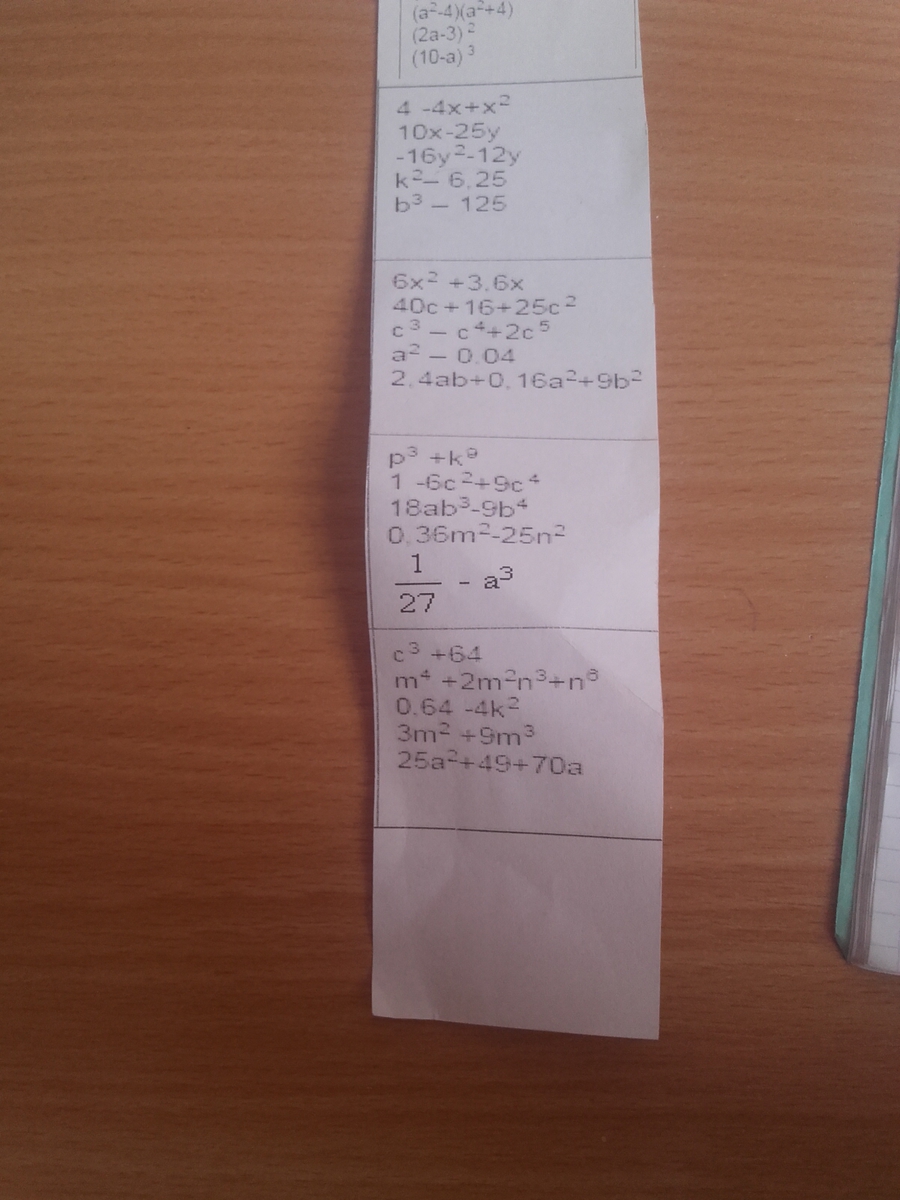 (a²-4)(a²+4)
(2a-3)²
(10-a)³
4 -4x+x²
10x-25y
-16y²-12y
k²– 6,25
b³ – 125
6x² +3,6x
40c+16+25c²
c³ – c⁴+2c⁵
a² – 0,04
2,4ab+0,16a²+9b²
p³ +k⁹
1 -6c²+9c⁴
18ab³-9b⁴
0,36m²-25n²
1/27 - a³
c³ +64
m⁴ +2m²n³+n⁶
0,64 -4k²
3m² +9m³
25a²+49+70a